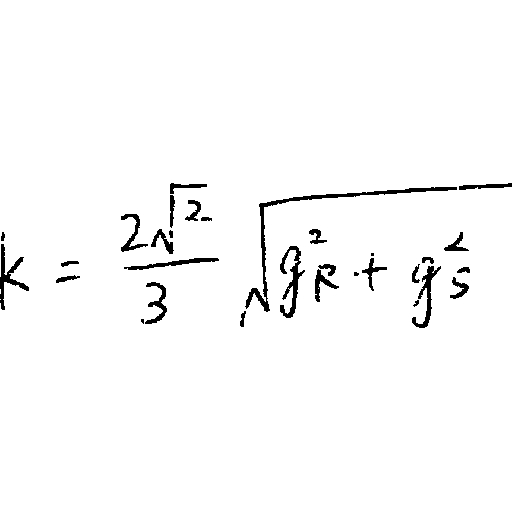 k = \frac{2\sqrt{2}}{3} \sqrt{g_R^2 + g_S^2}